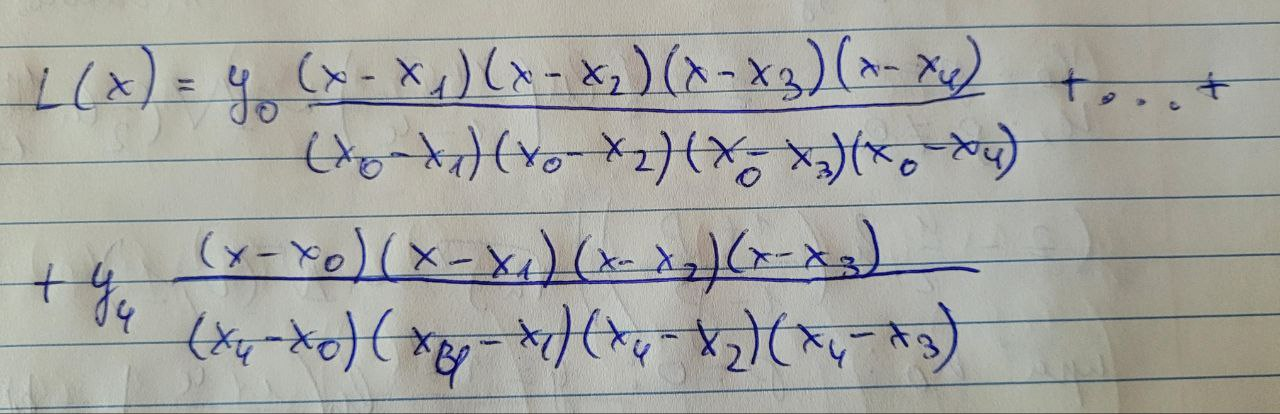 L(x) = y₀ (x - x₁)(x - x₂)(x - x₃)(x - x₄) + ... +
(x₀ - x₁)(x₀ - x₂)(x₀ - x₃)(x₀ - x₄)
+ y₄ (x - x₀)(x - x₁)(x - x₂)(x - x₃)
(x₄ - x₀)(x₄ - x₁)(x₄ - x₂)(x₄ - x₃)